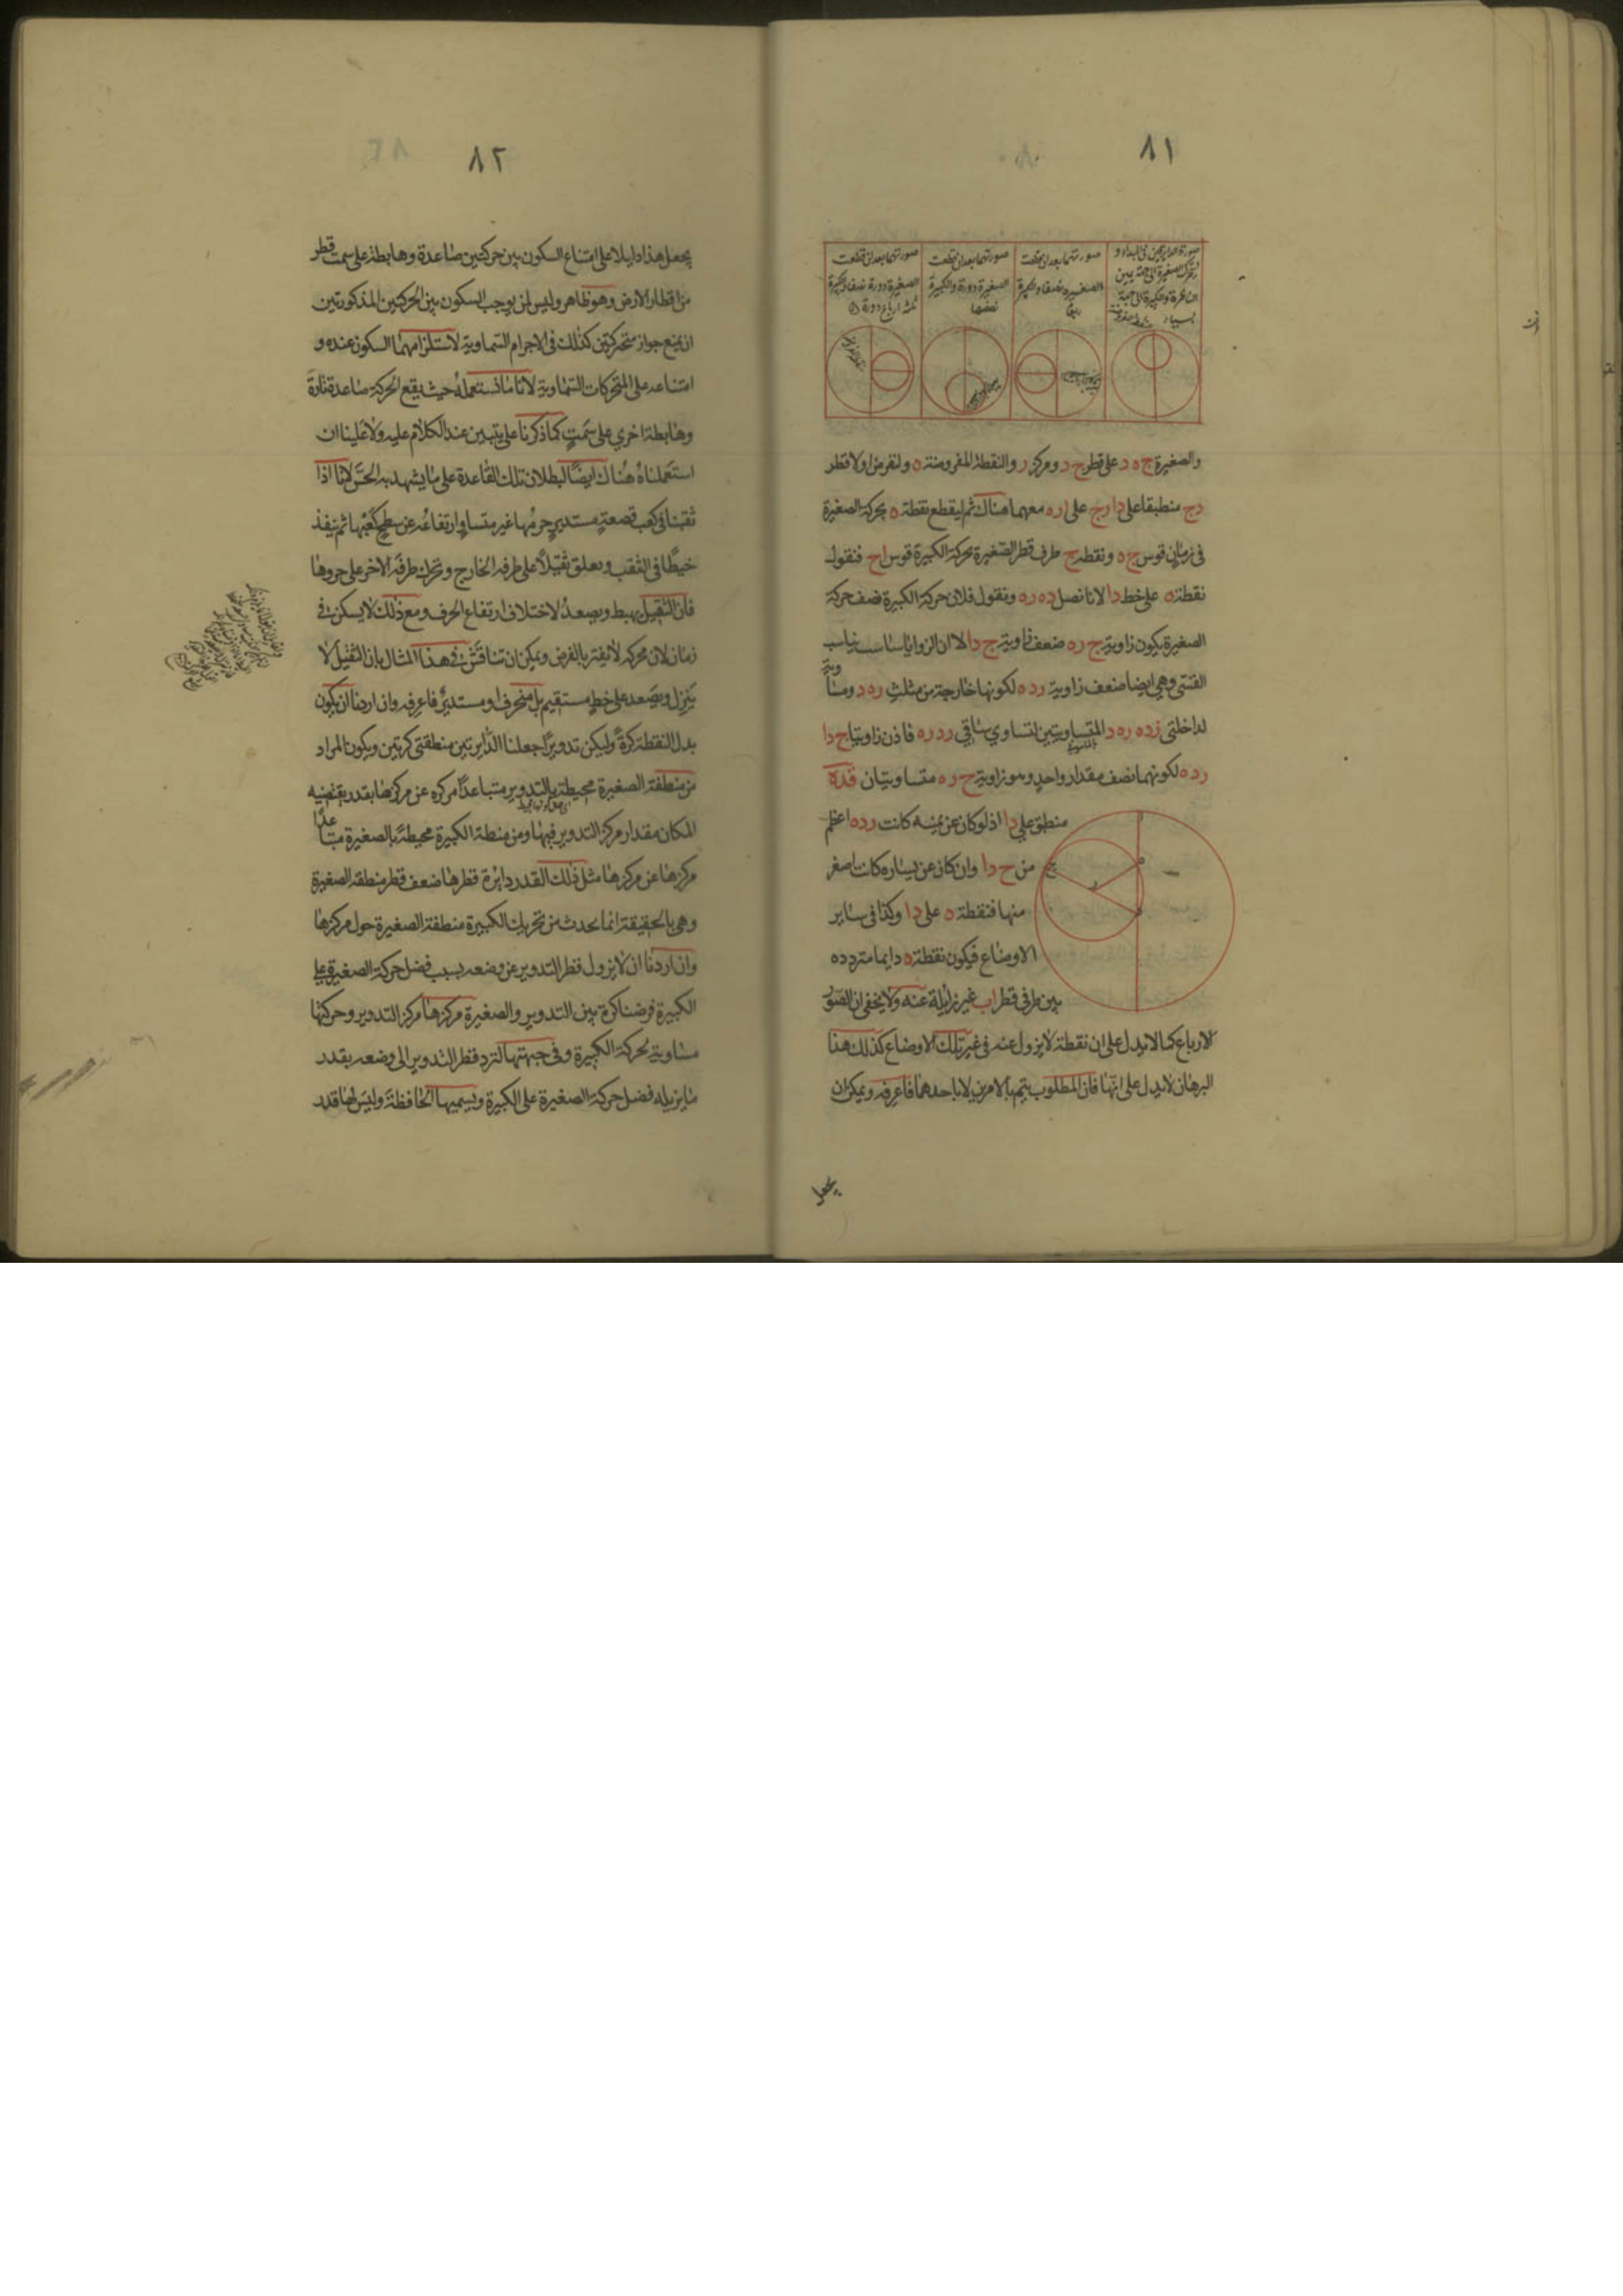 ٨١
صورة الدائرتين في المبداء و
تحرك الصغيرة الى جهة يمين
الناظرة والكبيرة الى جهة
يساره
صورتهما بعد ان قطعت
الصغيرة نصفا والكبيرة
ربعا
صورتهما بعد ان قطعت
الصغيرة دورة والكبيرة
نصفها
صورتهما بعد ان قطعت
الصغيرة دورة ونصفا والكبيرة
ثلثة ارباع دورة
والصغيرة ج ه د على قطر ج د ومركز ر والنقطة المفروضة ه ولنفرض اولا قطر
د ج منطبقا على د ا و ج على ا و ه معهما هناك ثم ليقطع نقطة ه بحركة الصغيرة
في زمان قوس ج ه ونقطة ج طرف قطر الصغيرة بحركة الكبيرة قوس ا ج فنقول
نقطة ه على خط د ا لانا نصل د ه ر ه ونقول فلان حركة الكبيرة نصف حركة
الصغيرة يكون زاوية ج ر ه ضعف زاوية ج د ا لان الزوايا تناسب
القسي وهي ايضا ضعف زاوية ر د ه لكونها خارجة من مثلث ر ه د ومساوية
لداخلتي ر د ه ر ه د المتساويتين لتساوي ساقي ر د ر ه فاذن زاويتا ج د ا
ر د ه لكونهما نصف مقدار واحد وهو زاوية ج ر ه متساويتان فد ه
منطبق على د ا اذ لو كان عن يمينه كانت ر د ه اعظم
من ج د ا وان كان عن يساره كانت اصغر
منها فنقطة ه على د ا وكذا في ساير
الاوضاع فيكون نقطة ه دايما مترددة
بين طرفي قطر ا ب غير زايلة عنه ولا يخفى ان الصور
الارباع كما لا تدل على ان نقطة لا يزول عنه في غير تلك الاوضاع كذلك هذا
البرهان لا يدل على انها فان المطلوب يتم بالامرين لا باحدهما فاعرفه ويمكن ان
يجعل
٨٢
يجعل هذا دليلا على امتناع السكون بين حركتين صاعدة وهابطة على سمت قطر
من اقطار الارض وهو ظاهر وليس لمن يوجب السكون بين الحركتين المذكورتين
ان يمنع جواز متحركتين كذلك في الاجرام السماوية لاستلزامهما السكون عنده و
امتناعه على المتحركات السماوية لانا ما نستعمله حيث يقع الحركة صاعدة تارة
وهابطة اخرى على سمت كما ذكرنا على يتبين عند الكلام عليه ولا علينا ان
استعملناه هناك ايضا لبطلان تلك القاعدة على ما يشهد به الحس لانا اذا
ثقبنا في كعب قصعة مستدير حرمها غير متساو ارتفاعه عن سطح كعبها ثم ينفذ
خيطا في الثقب ويعلق ثقيلا على طرفه الخارج وتحرك طرفه الاخر على حروفها
فان الثقيل يهبط ويصعد لاختلاف ارتفاع الحرف ومع ذلك لا يسكن في
زمان لان محركه لا يفتر بالفرض ويمكن ان تناقش في هذا المثال بان الثقيل لا
ينزل ويصعد على خط مستقيم بل منحرف او مستدير فاعرفه وان اردنا ان يكون
بدل النقطة كرة وليكن تدويرا جعلنا الدايرتين منطقتي كرتين ويكون المراد
من منطقة الصغيرة محيطة بالتدوير متباعدا مركزه عن مركزها بقدر يقتضيه
المكان مقدار مركز التدوير فيها ومن منطقة الكبيرة محيطة بالصغيرة متباعدا
مركزها عن مركزها مثل ذلك القدر دائرة قطرها ضعف قطر منطقة الصغيرة
وهي بالحقيقة انما يحدث من تحريك الكبيرة منطقة الصغيرة حول مركزها
وان اردنا ان لا يزول قطر التدوير عن وضعه بسبب فضل حركة الصغيرة على
الكبيرة فرضنا كرة بين التدوير والصغيرة مركزها مركز التدوير وحركتها
مساوية لحركة الكبيرة وفي جهتها لترد قطر التدوير الى وضعه بقدر
ما يزيله فضل حركة الصغيرة على الكبيرة ونسميها الحافظة وليس لها قدر